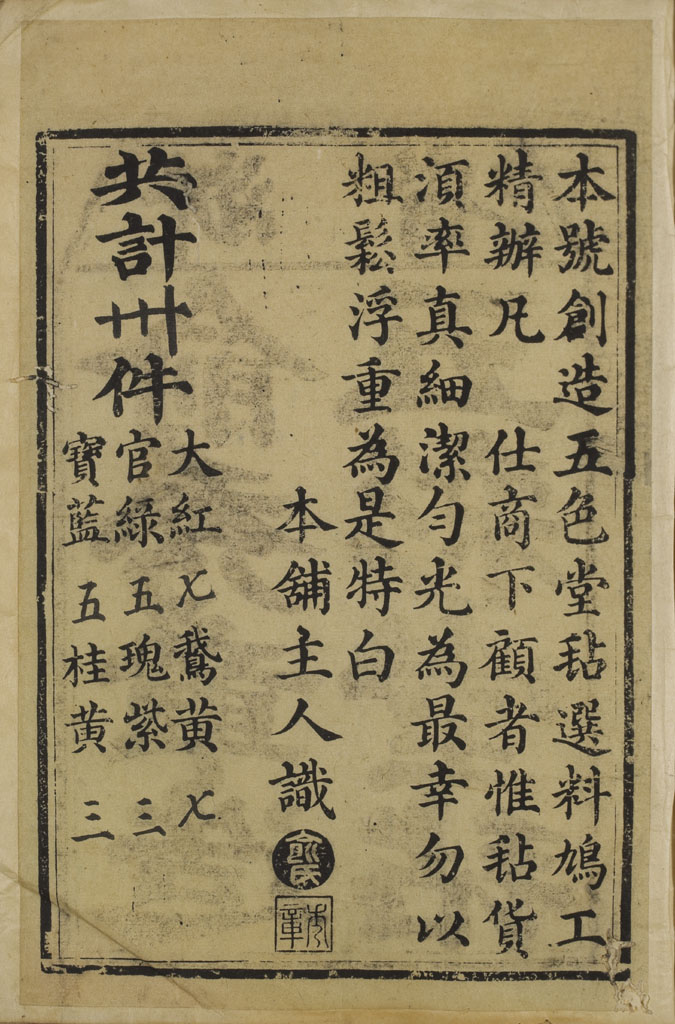 本號創造五色堂毡選料鳩工
精辦凡 仕商下顧者惟毡貨
湏率真細潔勻光為最幸勿以
粗鬆浮重為是特白
本舖主人識
俞氏
共計卅件
大紅 七 鵝黄 七
官綠 五 瑰紫 三
寶藍 五 桂黄 三